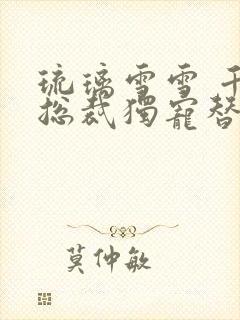 琉璃雪雪 千
總裁獨寵替
莫仲敏